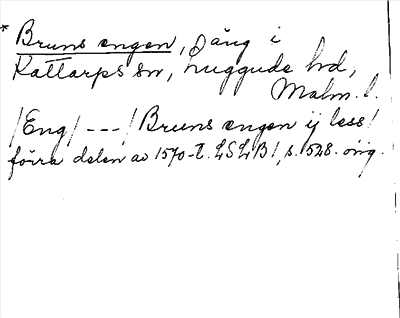 * Bruns engen, äng i
Kattarps sn, Luggude hd,
Malm. l.
/Eng/ ---/ Bruns engen ij less/
förra delen av 1570-t. LSLB1, s. 528. orig.